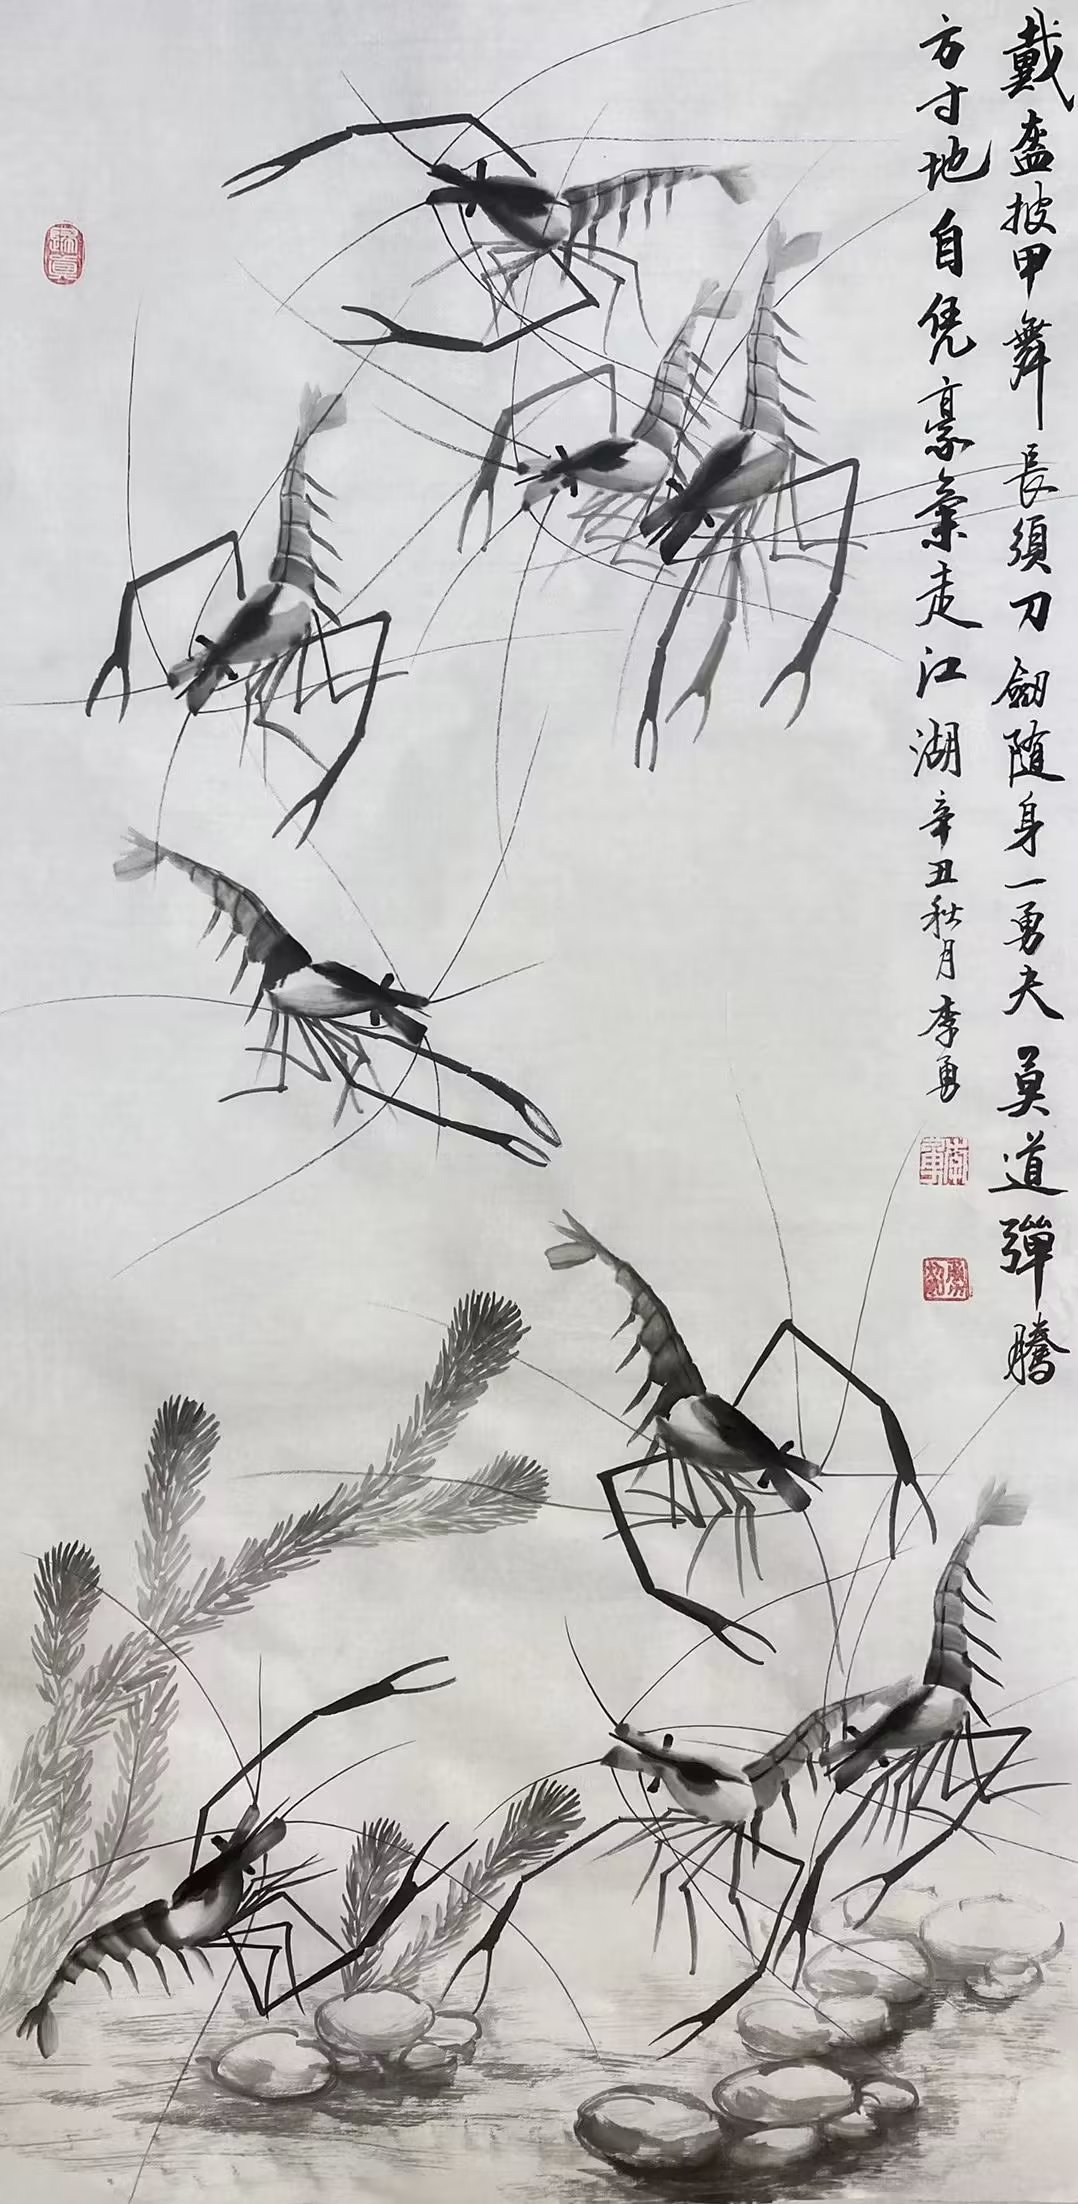 戴盔披甲舞長須刀劔随身一勇夫莫道彈騰
方寸地自凭豪氣走江湖辛丑秋月李勇